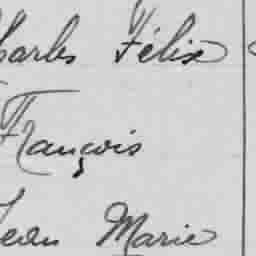 Charles Félix
François
Jean Marie